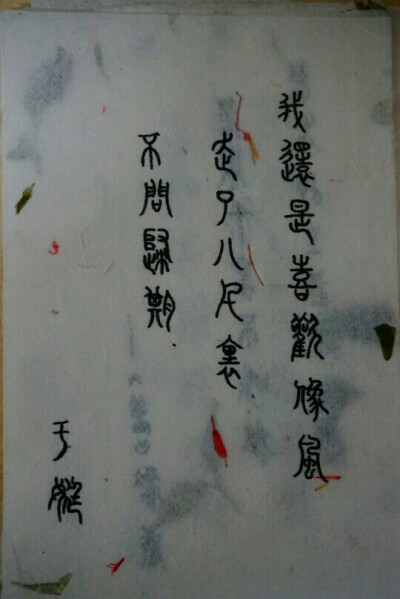 我還是喜歡像風
走了八千裏
不問歸期
于